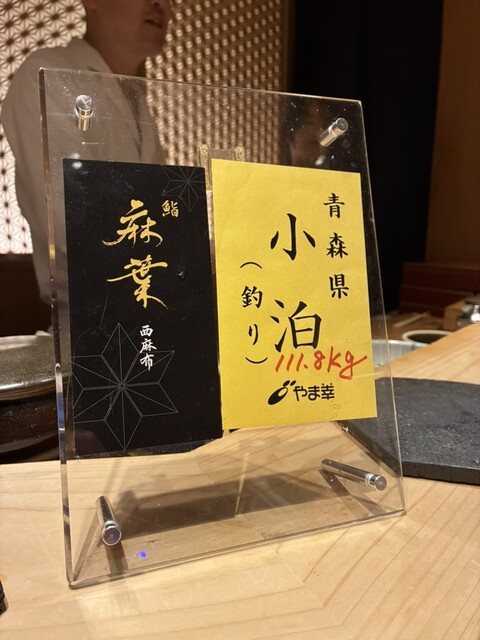 鮨
麻葉
西麻布
青森県
小泊
(釣り)
111.8kg
やま幸